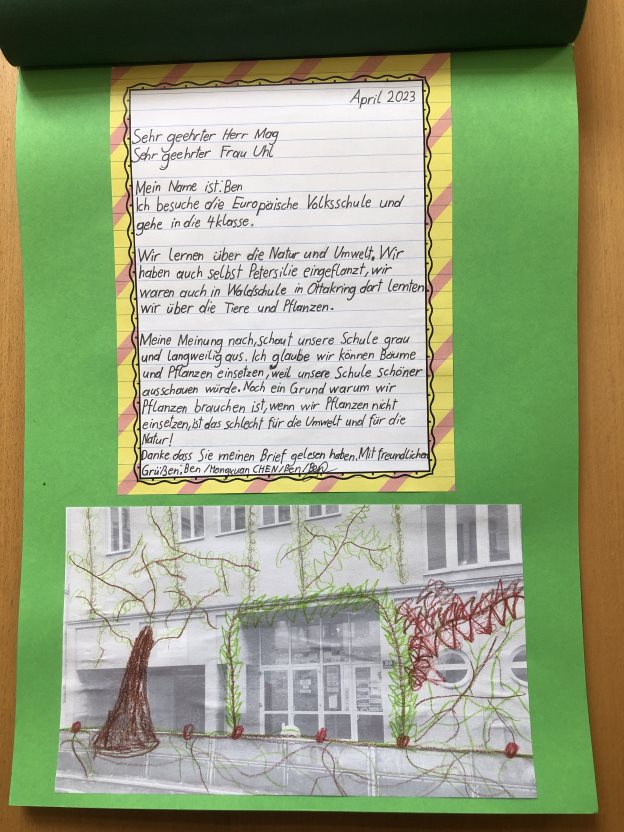 April 2023
Sehr geehrter Herr Mag
Sehr geehrter Frau Uhl
Mein Name ist: Ben
Ich besuche die Europäische Volksschule und
gehe in die 4klasse.
Wir lernen über die Natur und Umwelt. Wir
haben auch selbst Petersilie eingeflanzt, wir
waren auch in Waldschule in Ottakring dort lernten
wir über die Tiere und Pflanzen.
Meine Meinung nach, schaut unsere Schule grau
und langweilig aus. Ich glaube wir können Bäume
und Pflanzen einsetzen, weil unsere Schule schöner
ausschauen würde. Noch ein Grund warum wir
Pflanzen brauchen ist, wenn wir Pflanzen nicht
einsetzen, ist das schlecht für die Umwelt und für die
Natur!
Danke dass Sie meinen Brief gelesen haben. Mit freundlichen
Grüßen: Ben /Hongxuan CHEN/Ben/Ben